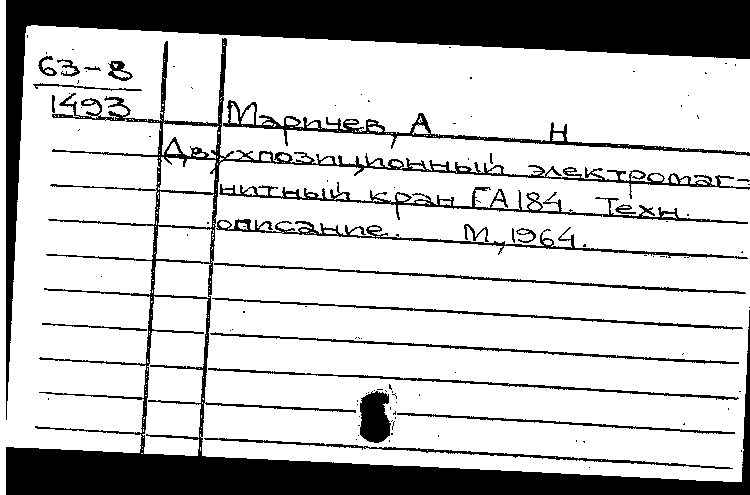 63-8
1493
Маричев, А Н
Двухпозиционный электромаг=
нитный кран ГА184. Техн.
описание. М., 1964.